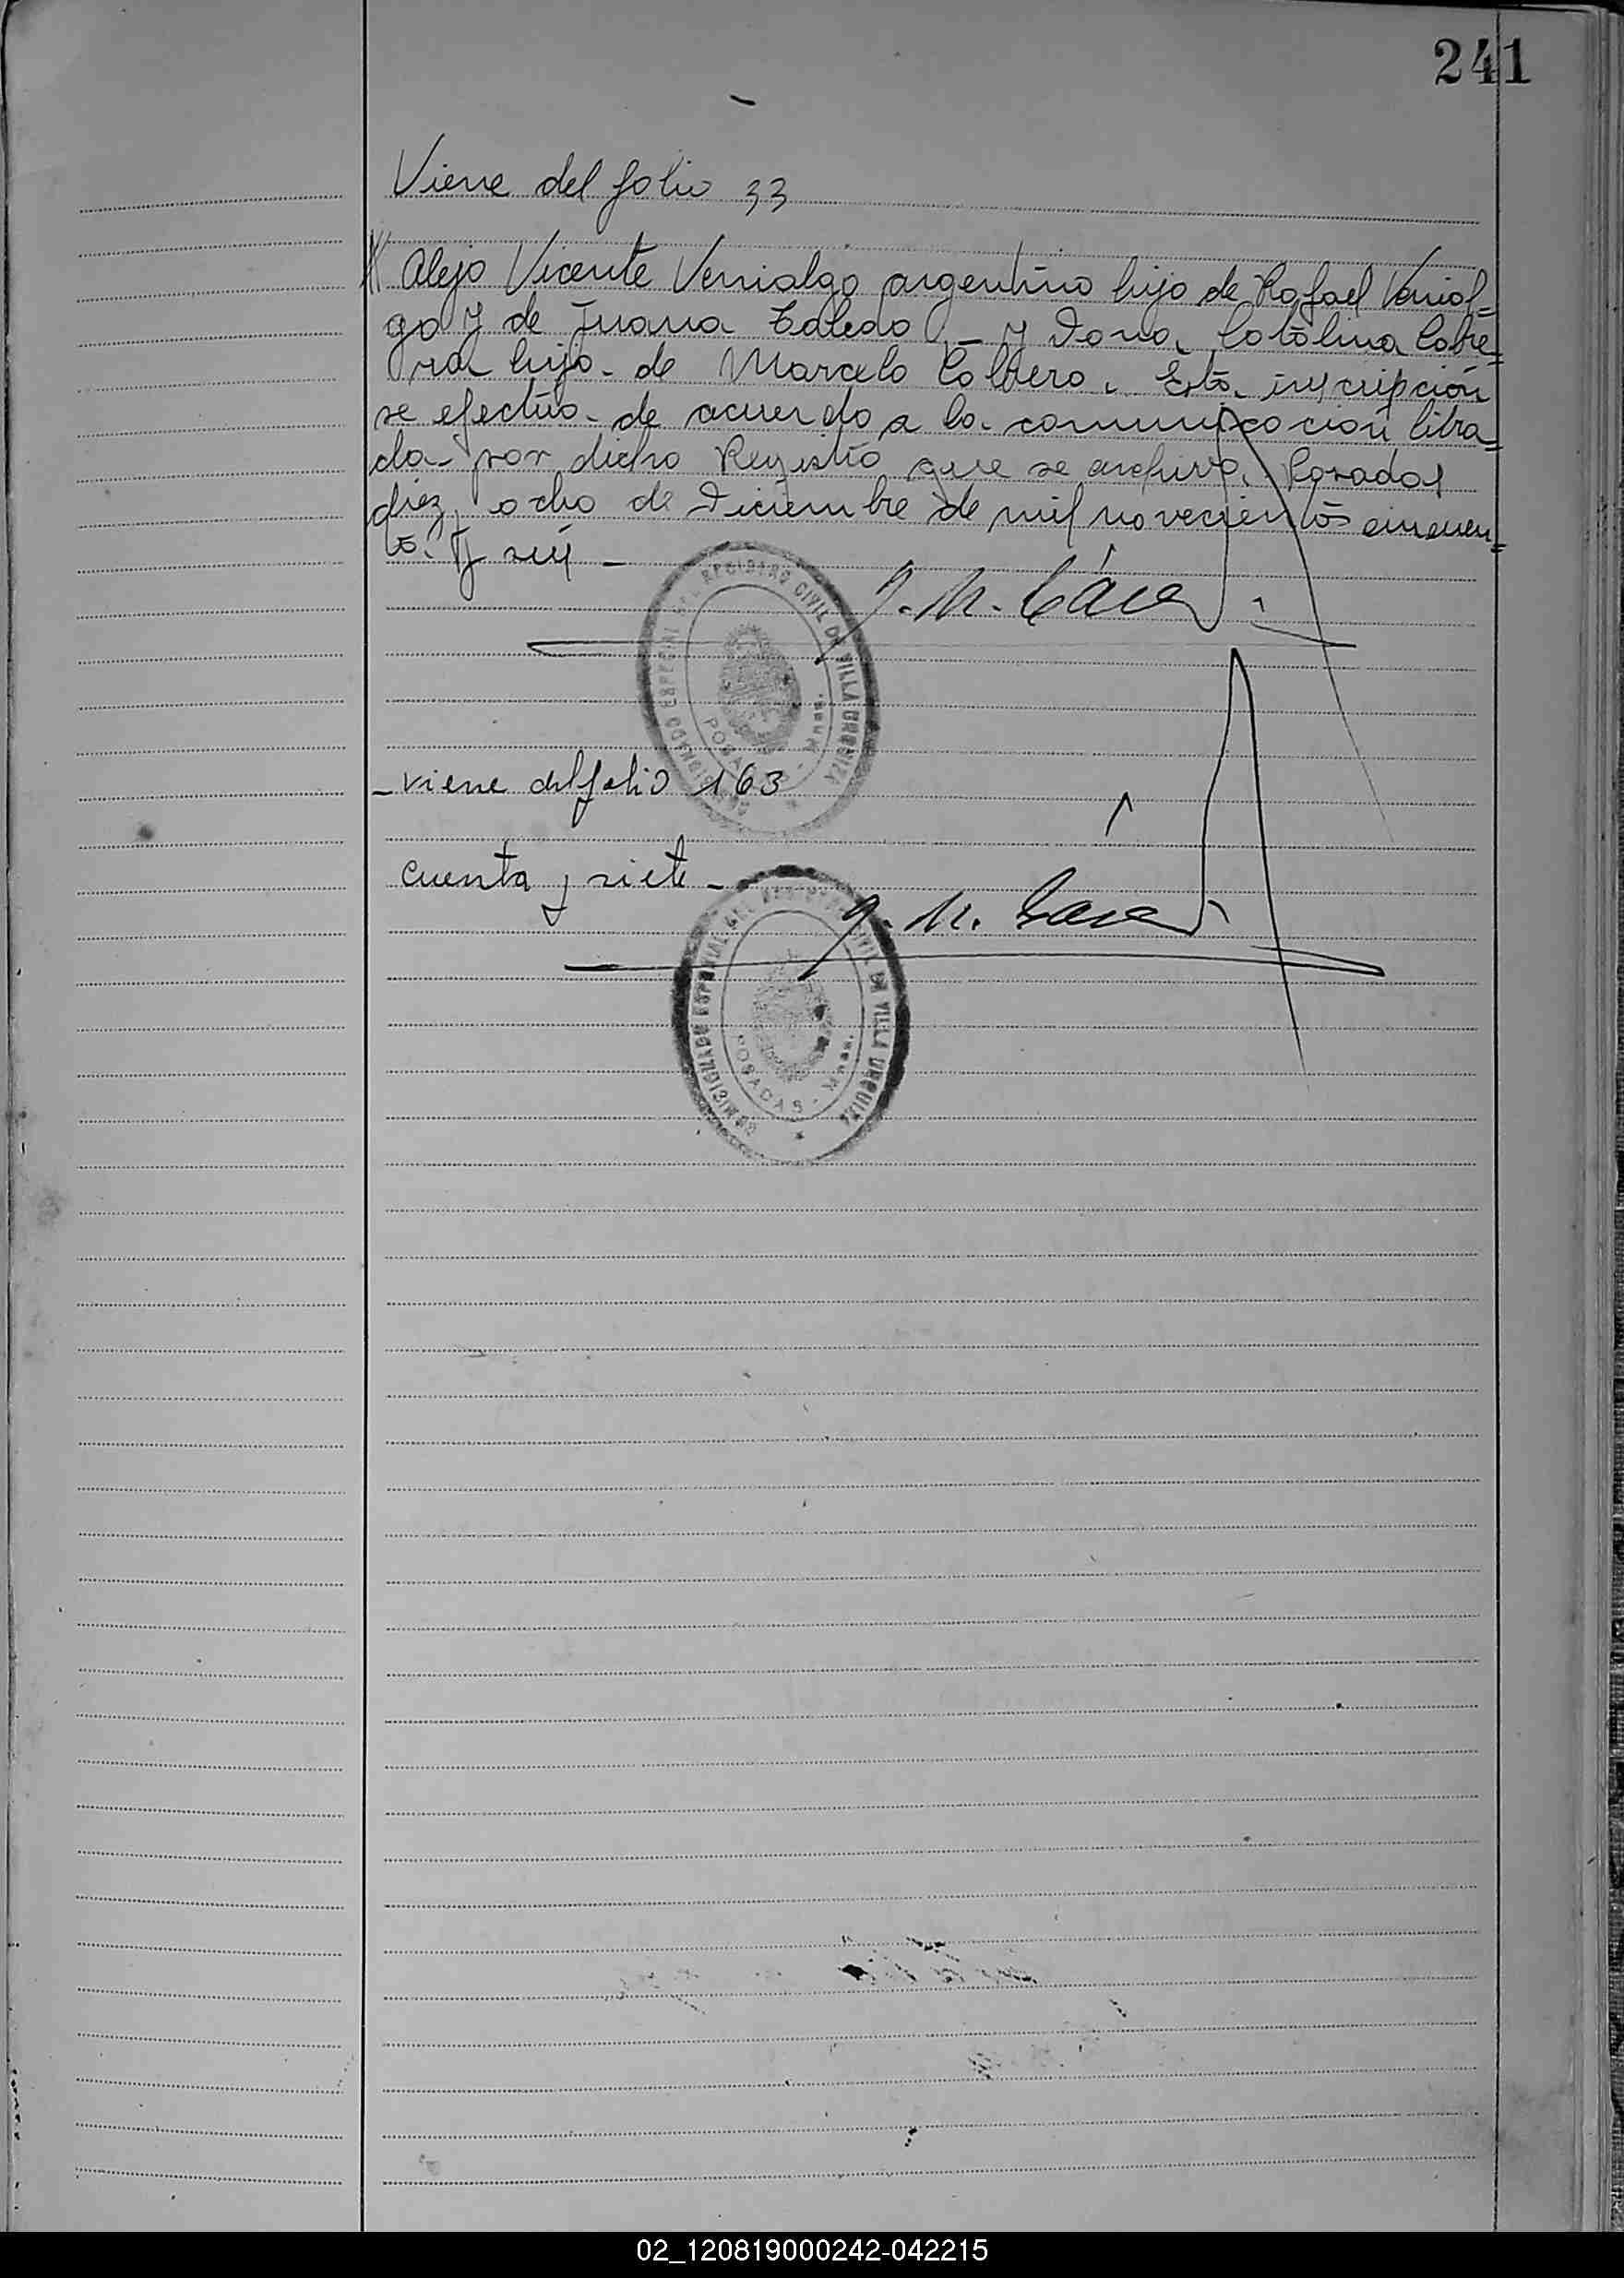 241
Viene del folio 33
// Alejo Vicente Venialgo argentino hijo de Rafael Venial=
go y de Juana Toledo - y Dona Catalina Cabre=
ra hija de Marcelo Cabrera. Esta inscripción
se efectúa de acuerdo a la comunicación libra=
da por dicho Registro que se archiva. Posadas
diez y ocho de Diciembre de mil novecientos cincuen=
ta y seis -
REGISTRO CIVIL DE VILLA URQUIZA
POSADAS - Mnes.
- viene del folio 163
cuenta y siete -
COMISIONADO ESPECIAL DEL REGISTRO CIVIL DE VILLA URQUIZA
POSADAS - Mnes.
02_120819000242-042215